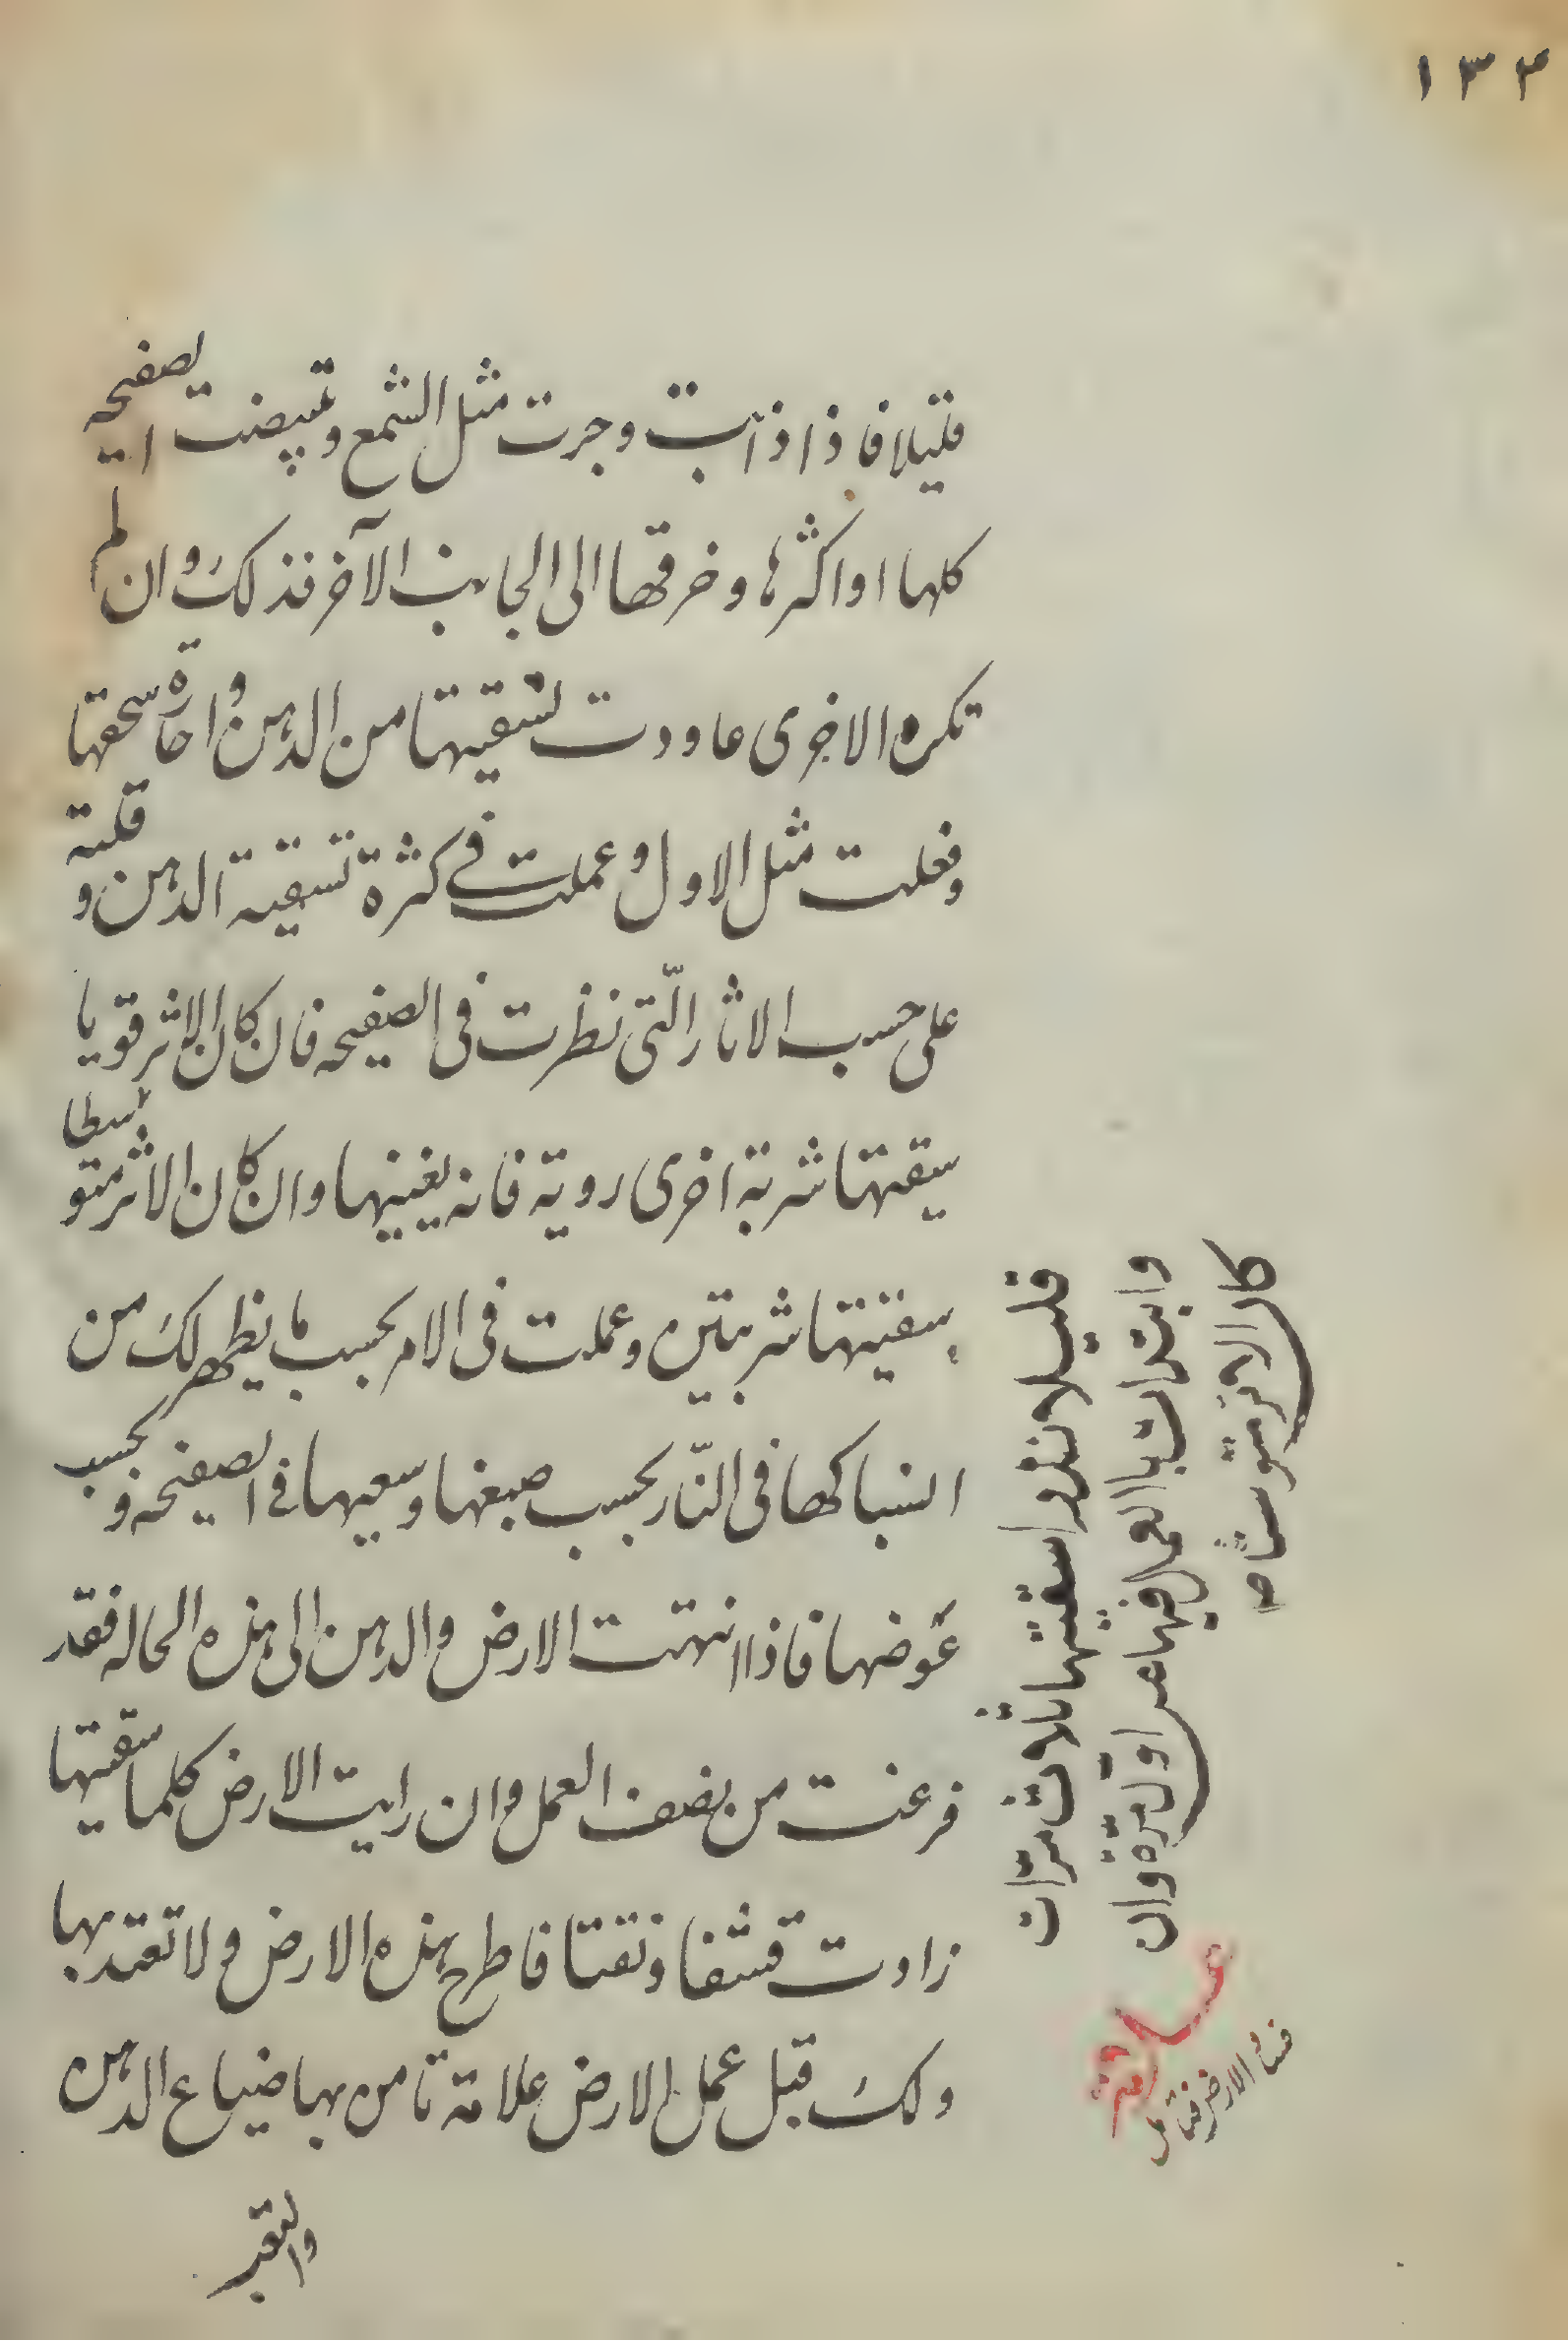 ١٣٣
قليلا فاذا ذابت وجرت مثل الشمع وتبيضت الصفيحه
كلها او اكثرها وخرقها الى الجانب الآخر فذلك وان لم
تكن الاخرى عاودت تسقيتها من الدهن واجادة سحقها
وفعلت مثل الاول وعملت في كثرة تسقية الدهن وقلته
على حسب الاثار الّتى نظرت فى الصفيحه فان كان الاثر قويا
سقيتها شربة اخرى روية فانه يغنيها وان كان الاثر متوسطا
سقيتها شربتين وعملت فى الامر بحسب ما يظهر لك من
انسباكها فى النّار بحسب صبغها وسعيها فى الصفيحه وبحسب
غوضها فاذا انتهت الارض والدهن الى هذه الحاله فقد
فرغت من نصف العمل وان رايت الارض كلما سقيتها
زادت قشفا وتفتتا فاطرح هذه الارض ولا تعتد بها
ولك قبل عمل الارض علامة تامن بها ضياع الدهن
والتعب
كان الاثر متوسطا صح
وابتدات بالعمل فيها من اول مرّة وان
قليلا نزرا سقيتها ثلاث مرّات
فساد الارض